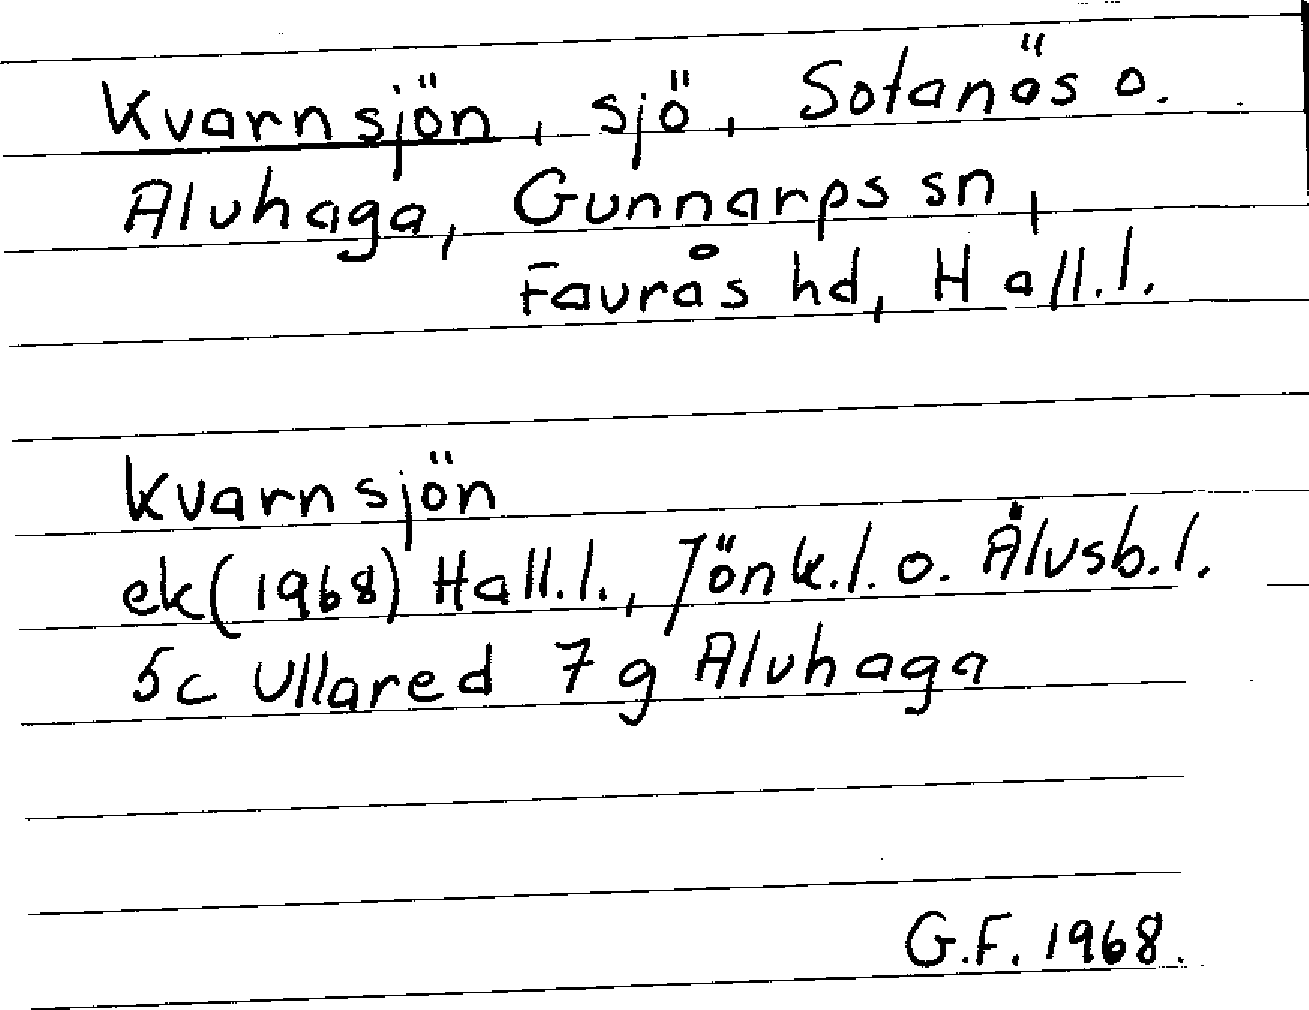 Kvarnsjön, sjö, Sotanäs o.
Aluhaga, Gunnarps sn,
Faurås hd, Hall.l.
Kvarnsjön
ek (1968) Hall.l., Jönk.l. o. Älvsb.l.
5c Ullared 7g Aluhaga
G.F. 1968.